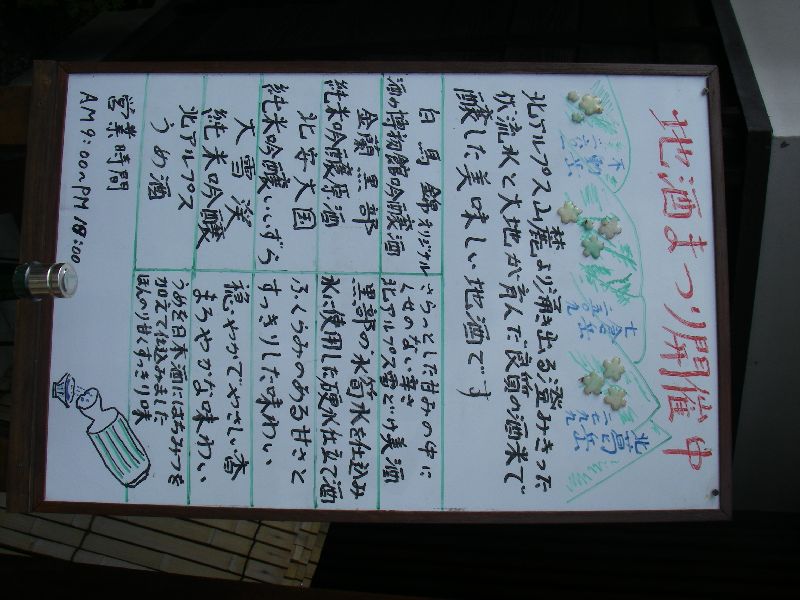 地酒まつり開催中
不動岳
七倉岳
二五〇九
北葛岳
北アルプス山麓より湧き出る澄みきった
伏流水と大地が育んだ良質の酒米で
醸した美味しい地酒です
白馬錦オリジナル
酒の博物館吟醸酒
さらっとした甘みの中に
くせのない辛さ
北アルプス雪どけ美酒
金蘭黒部
純米吟醸原酒
黒部の氷筍水を仕込み
水に使用した硬水仕立て酒
北安大国
純米吟醸いいずら
ふくらみのある甘さと
すっきりした味わい
大雪渓
純米吟醸
穏やかでやさしい香
まろやかな味わい
北アルプス
うめ酒
うめを日本酒にはちみつを
加えて仕込みました
ほんのり甘くすっきり味
営業時間
AM9:00〜PM18:00